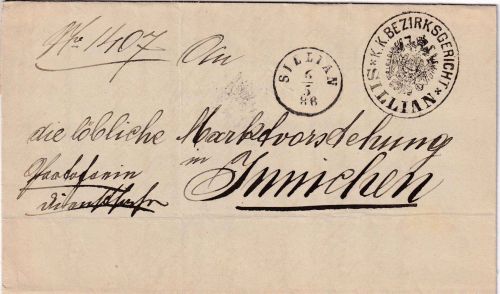 No 1407
An
SILLIAN
6
5
86
K.K. BEZIRKSGERICHT * SILLIAN *
die löbliche Marktvorstehung
in
Innichen